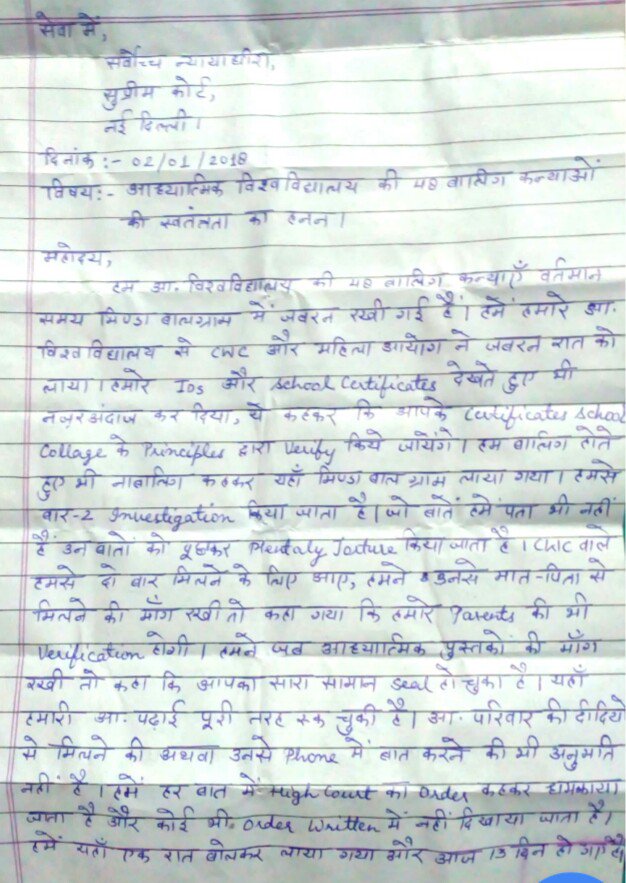 सेवा में,
सर्वोच्च न्यायाधीश,
सुप्रीम कोर्ट,
नई दिल्ली।
दिनांक :- 02/01/2018
विषय:- आध्यात्मिक विश्वविद्यालय की 48 बालिग कन्याओं
की स्वतंत्रता का हनन।
महोदय,
हम आ. विश्वविद्यालय की 48 बालिग कन्याएँ वर्तमान
समय मिण्डा बालग्राम में जबरन रखी गई हैं। हमें हमारे आ.
विश्वविद्यालय से CWC और महिला आयोग ने जबरन रात को
लाया। हमारे IDs और School Certificates देखते हुए भी
नज़रअंदाज कर दिया, ये कहकर कि आपके Certificates School
Collage के Principles द्वारा Verify किये जायेंगे। हम बालिग होते
हुए भी नाबालिग कहकर यहाँ मिण्डा बाल ग्राम लाया गया। हमसे
बार-2 Investigation किया जाता है। जो बातें हमें पता भी नहीं
हैं उन बातों को पूछकर Mentaly Torture किया जाता है। CWC वाले
हमसे दो बार मिलने के लिए आए, हमने उनसे मात-पिता से
मिलने की माँग रखी तो कहा गया कि हमारे Parents की भी
Verification होगी। हमने जब आध्यात्मिक पुस्तकों की माँग
रखी तो कहा कि आपका सारा सामान Seal हो चुका है। यहाँ
हमारी आ. पढ़ाई पूरी तरह रुक चुकी है। आ. परिवार की दीदियों
से मिलने की अथवा उनसे Phone में बात करने की भी अनुमति
नहीं है। हमें हर बात में High Court का Order कहकर धमकाया
जाता है और कोई भी Order Written में नहीं दिखाया जाता है।
हमें यहाँ एक रात बोलकर लाया गया और आज 13 दिन हो गए हैं।